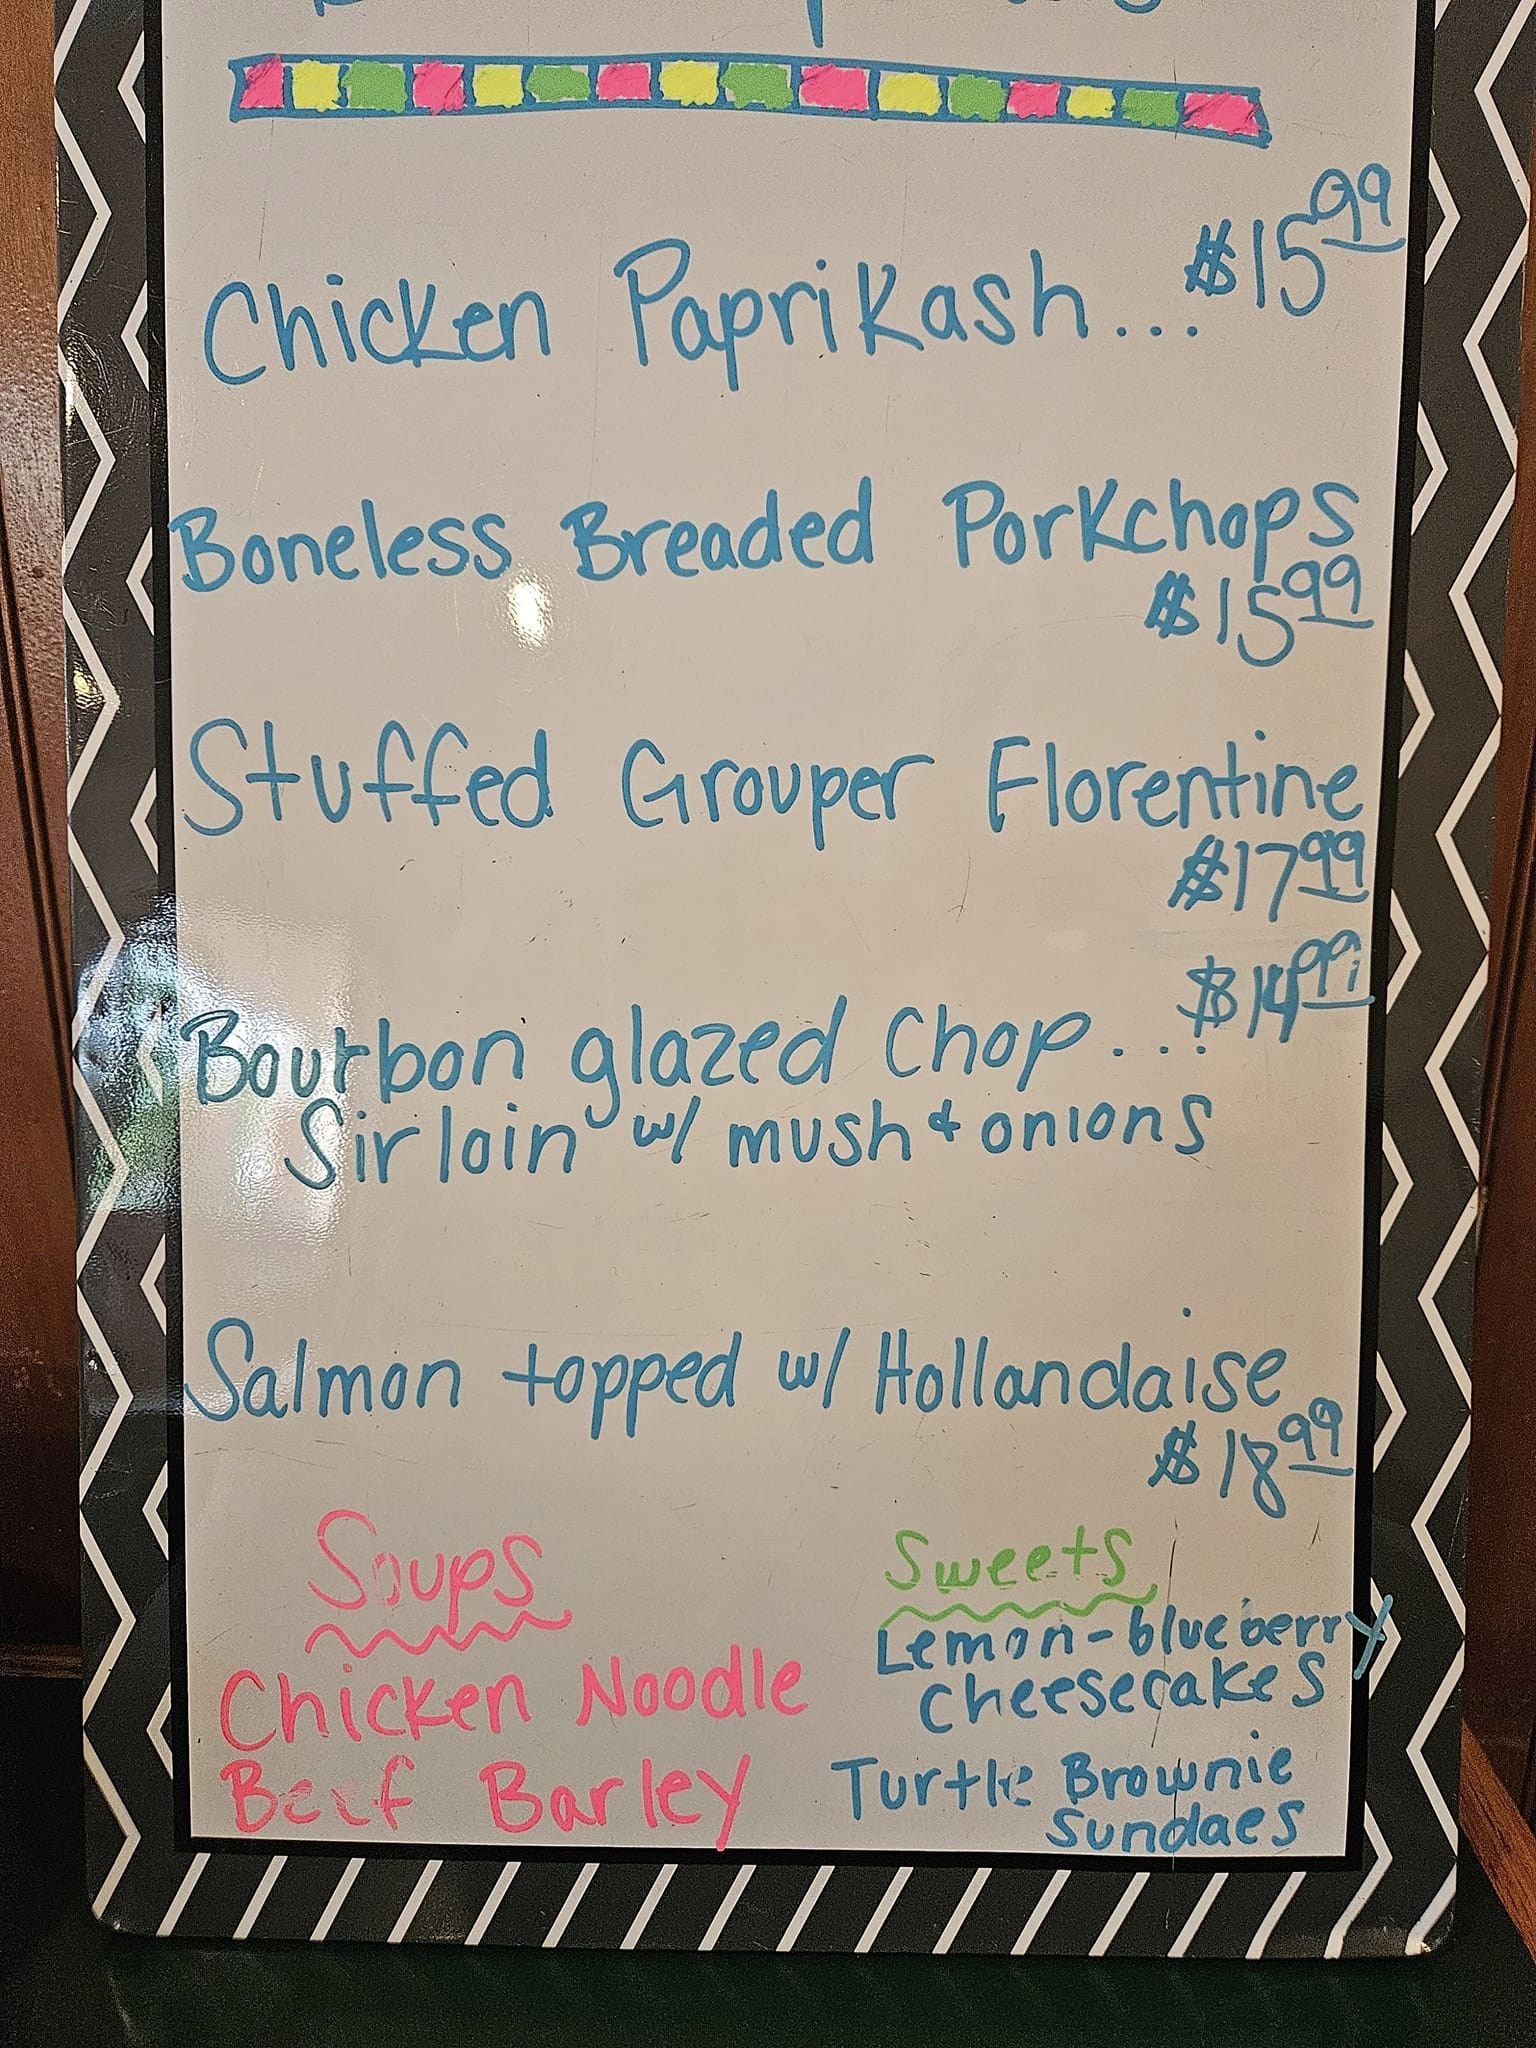 Chicken Paprikash... $15.99
Boneless Breaded Porkchops
$15.99
Stuffed Grouper Florentine
$17.99
Bourbon glazed Chop... $14.99
Sirloin w/ mush & onions
Salmon topped w/ Hollandaise
$18.99
Soups
Chicken Noodle
Beef Barley
Sweets
Lemon-blueberry
cheesecakes
Turtle Brownie
Sundaes